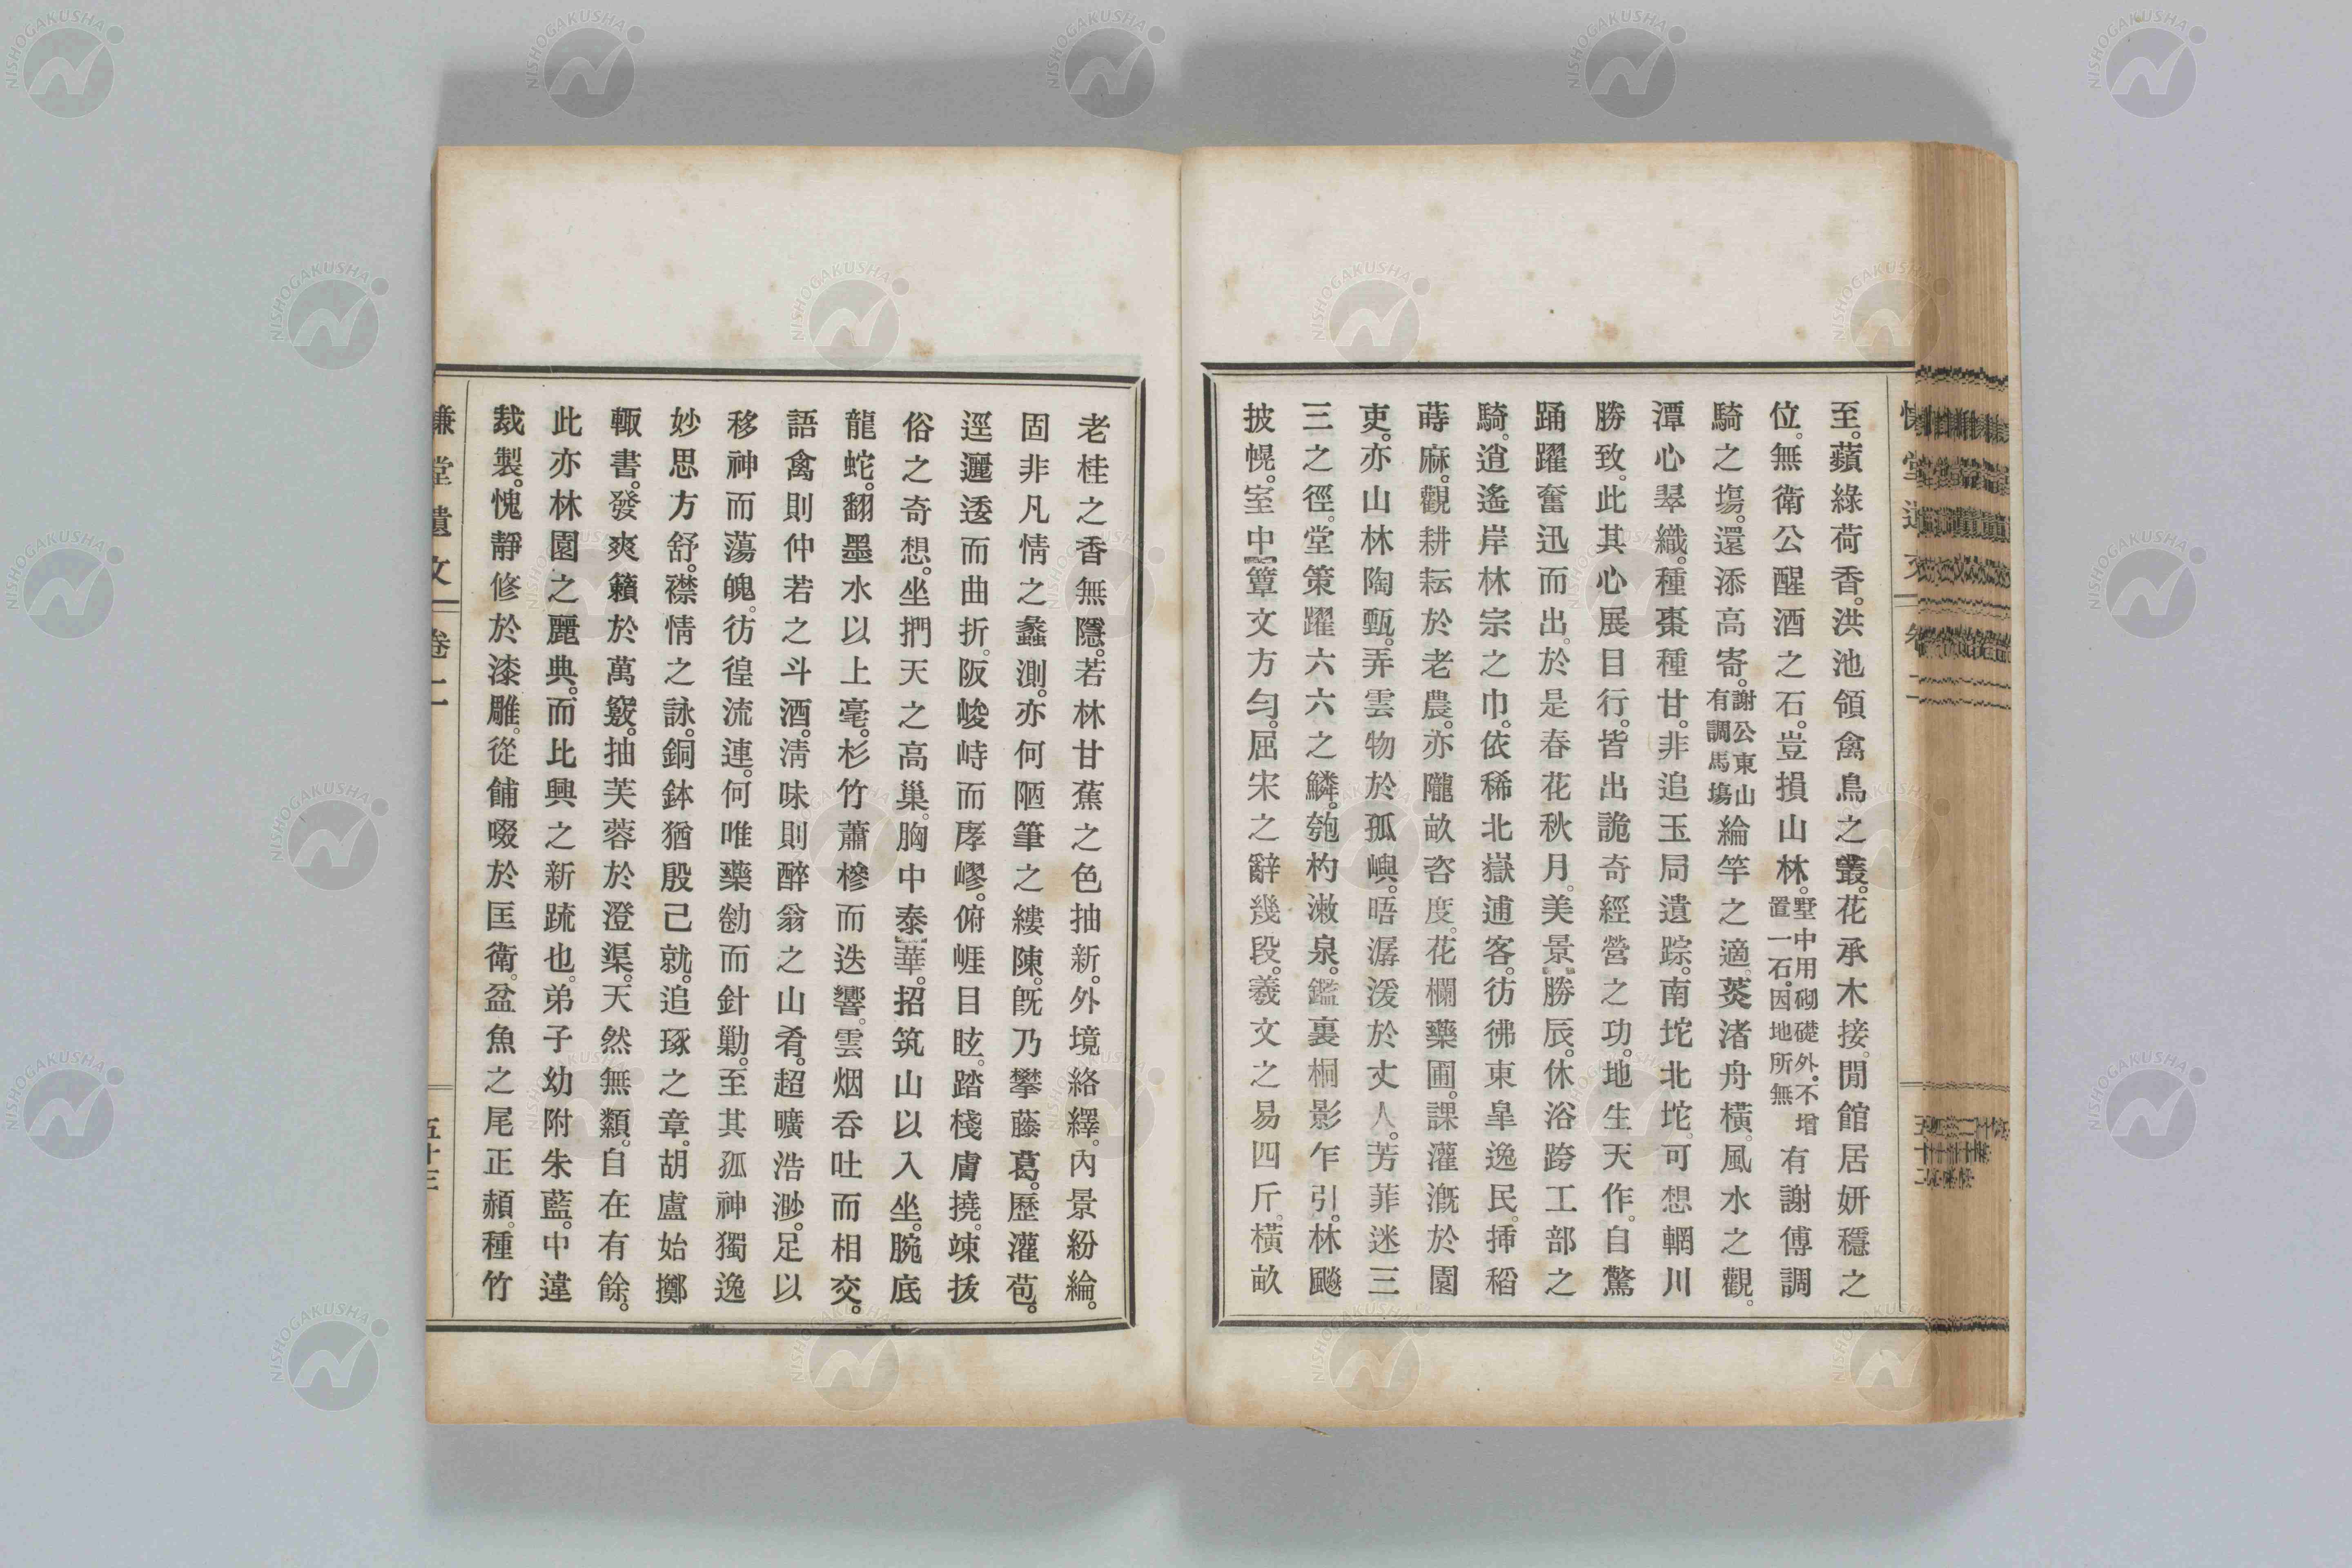 至。蘋綠荷香。洪池領禽鳥之叢。花承木接。閒館居妍穩之
位。無衛公醒酒之石。豈損山林。墅中用砌礎外。不增置一石。因地所無有謝傅調
騎之塲。還添高寄。謝公東山有調馬塲綸竿之適。葓渚舟橫。風水之觀。
潭心翠織。種棗種甘。非追玉局遺踪。南坨北坨。可想輞川
勝致。此其心展目行。皆出詭奇經營之功。地生天作。自驚
踊躍奮迅而出。於是春花秋月。美景勝辰。休浴跨工部之
騎。逍遙岸林宗之巾。依稀北嶽逋客。彷彿東皐逸民。挿稻
蒔麻。觀耕耘於老農。亦隴畝咨度。花欄藥圃。課灌漑於園
吏。亦山林陶甄。弄雲物於孤嶼。晤潺湲於丈人。芳菲迷三
三之徑。堂策躍六六之鱗。匏杓漱泉。鑑裏桐影乍引。林飈
披幌。室中簟文方勻。屈宋之辭幾段。羲文之易四斤。橫畝
老桂之香無隱。若林甘蕉之色抽新。外境絡繹。內景紛綸。
固非凡情之蠡測。亦何陋筆之縷陳。旣乃攀藤葛。歷灌苞。
逕邐逶而曲折。阪峻峙而庨嵺。俯崕目眩。踏棧膚撓。竦拔
俗之奇想。坐捫天之高巢。胸中泰華。招筑山以入坐。腕底
龍蛇。翻墨水以上毫。杉竹蕭槮而迭響。雲烟呑吐而相交。
語禽則仲若之斗酒。淸味則醉翁之山肴。超曠浩渺。足以
移神而蕩魄。彷徨流連。何唯藥劬而針勦。至其孤神獨逸
妙思方舒。襟情之詠。銅鉢猶殷已就。追琢之章。胡盧始擲
輙書。發爽籟於萬竅。抽芙蓉於澄渠。天然無纇。自在有餘。
此亦林園之麗典。而比興之新䟽也。弟子幼附朱藍。中違
裁製。愧靜修於漆雕。從餔啜於匡衛。盆魚之尾正赬。種竹
慊堂遺文 卷二 五十三